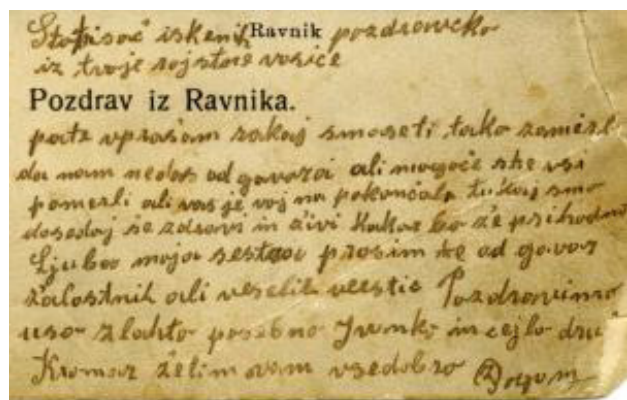 Stotisoč iskenih Ravnik pozdrowcko
iz tvoje rojstne vosice
Pozdrav iz Ravnika.
potz vprašam zakaj smoseti tako zamerl
da nam nedaš odgavora ali mogoče ste vsi
pomerli ali vas je voj na pokončala tukaj smo
dosedaj še zdravi in živi kakor bo že prihodno
Ljuba moja sestra prosim te od gavor
žalostnih ali veselih
uso žlahto posebno Ivanko in cejlo
Kromar želim vam vsedobro